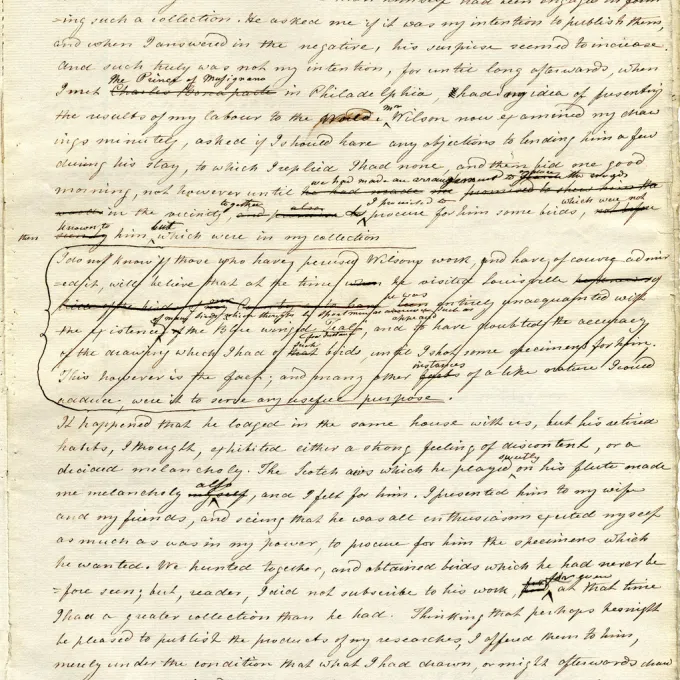 =ing such a collection. He asked me if it was my intention to publish them,
and when I answered in the negative, his surprise seemed to increase.
And such truly was not my intention, for until long afterwards, when
the Prince of Musignano
I met Charles Bonaparte in Philadelphia, I had no idea of presenting
the results of my labour to the World. Mr. Wilson now examined my draw
ings minutely, asked if I should have any objections to lending him a few
during his stay, to which I replied I had none, and then bid me good
morning, not however until
in the vicinity together, I promised to procure for him some birds, which were not
then known to him but which were in my collection
I do not know if those who have perused Wilson's work, and have of course admir
=ed it, will believe that at the time he visited Louisville
he was entirely unacquainted with
the existence of the Blue winged Teal, and to have doubted the accuracy
of the drawing which I had of such birds, until I shot some specimens for him.
This however is the fact; and many other instances of a like nature I could
adduce, were it to serve any useful purpose.
It happened that he lodged in the same house with us, but his retired
habits, I thought, exhibited either a strong feeling of discontent, or a
decided melancholy. The Scotch airs which he played sweetly on his flute made
me melancholy also myself, and I felt for him. I presented him to my wife
and my friends, and seeing that he was all enthusiasm exerted myself
as much as was in my power, to procure for him the specimens which
he wanted. We hunted together, and obtained birds which he had never be
=fore seen; but, reader, I did not subscribe to his work, for even at that time
I had a greater collection than he had. Thinking that perhaps he might
be pleased to publish the products of my researches, I offered them to him,
merely under the condition that what I had drawn, or might afterwards draw